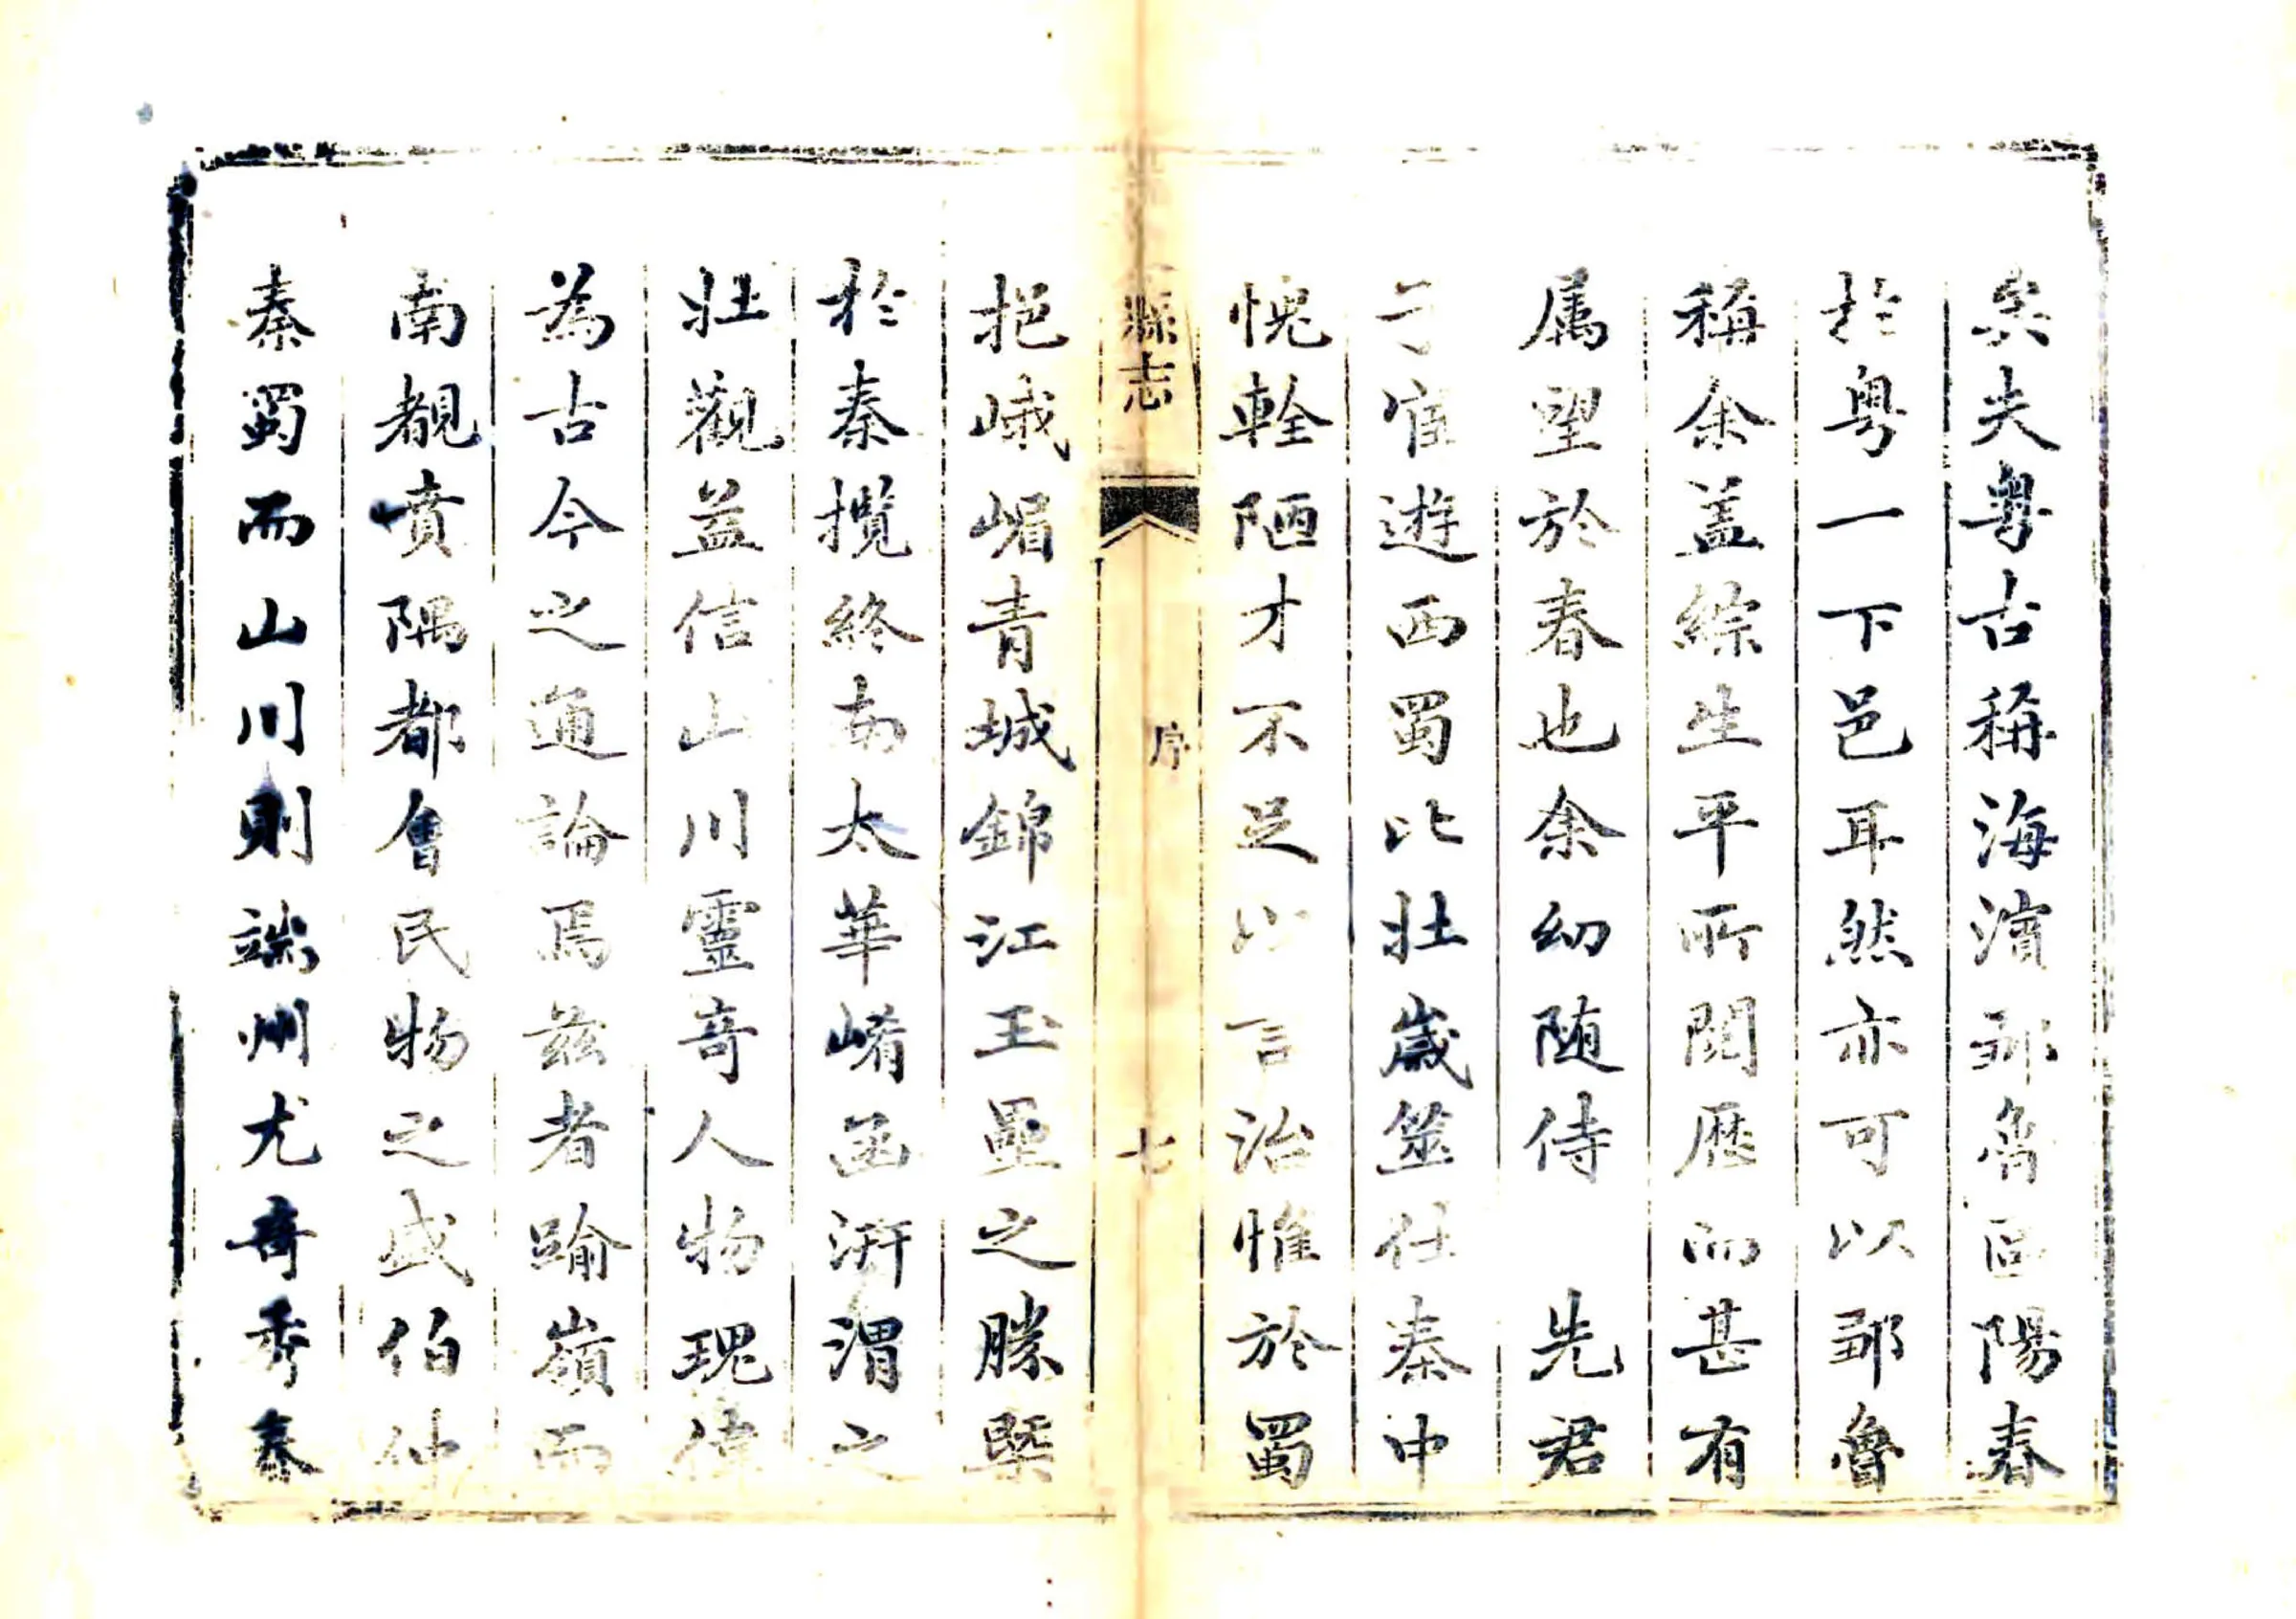 矣夫粤古稱海濱鄒魯區陽春
於粤一下邑耳然亦可以鄒魯
稱余盖綜生平所閱歷而甚有
属望於春也余幼随侍　先君
子宦遊西蜀比壯歳筮仕秦中
愧輇陋才不足以言治惟於蜀
縣志
序
七
挹峨嵋青城錦江玉壘之勝槩
於秦攬終南太華崤函汧渭之
壯觀益信山川靈竒人物瑰偉
為古今之通論焉兹者踰嶺而
南覩賁隅都會民物之盛伯仲
秦蜀而山川則端州尤竒秀春